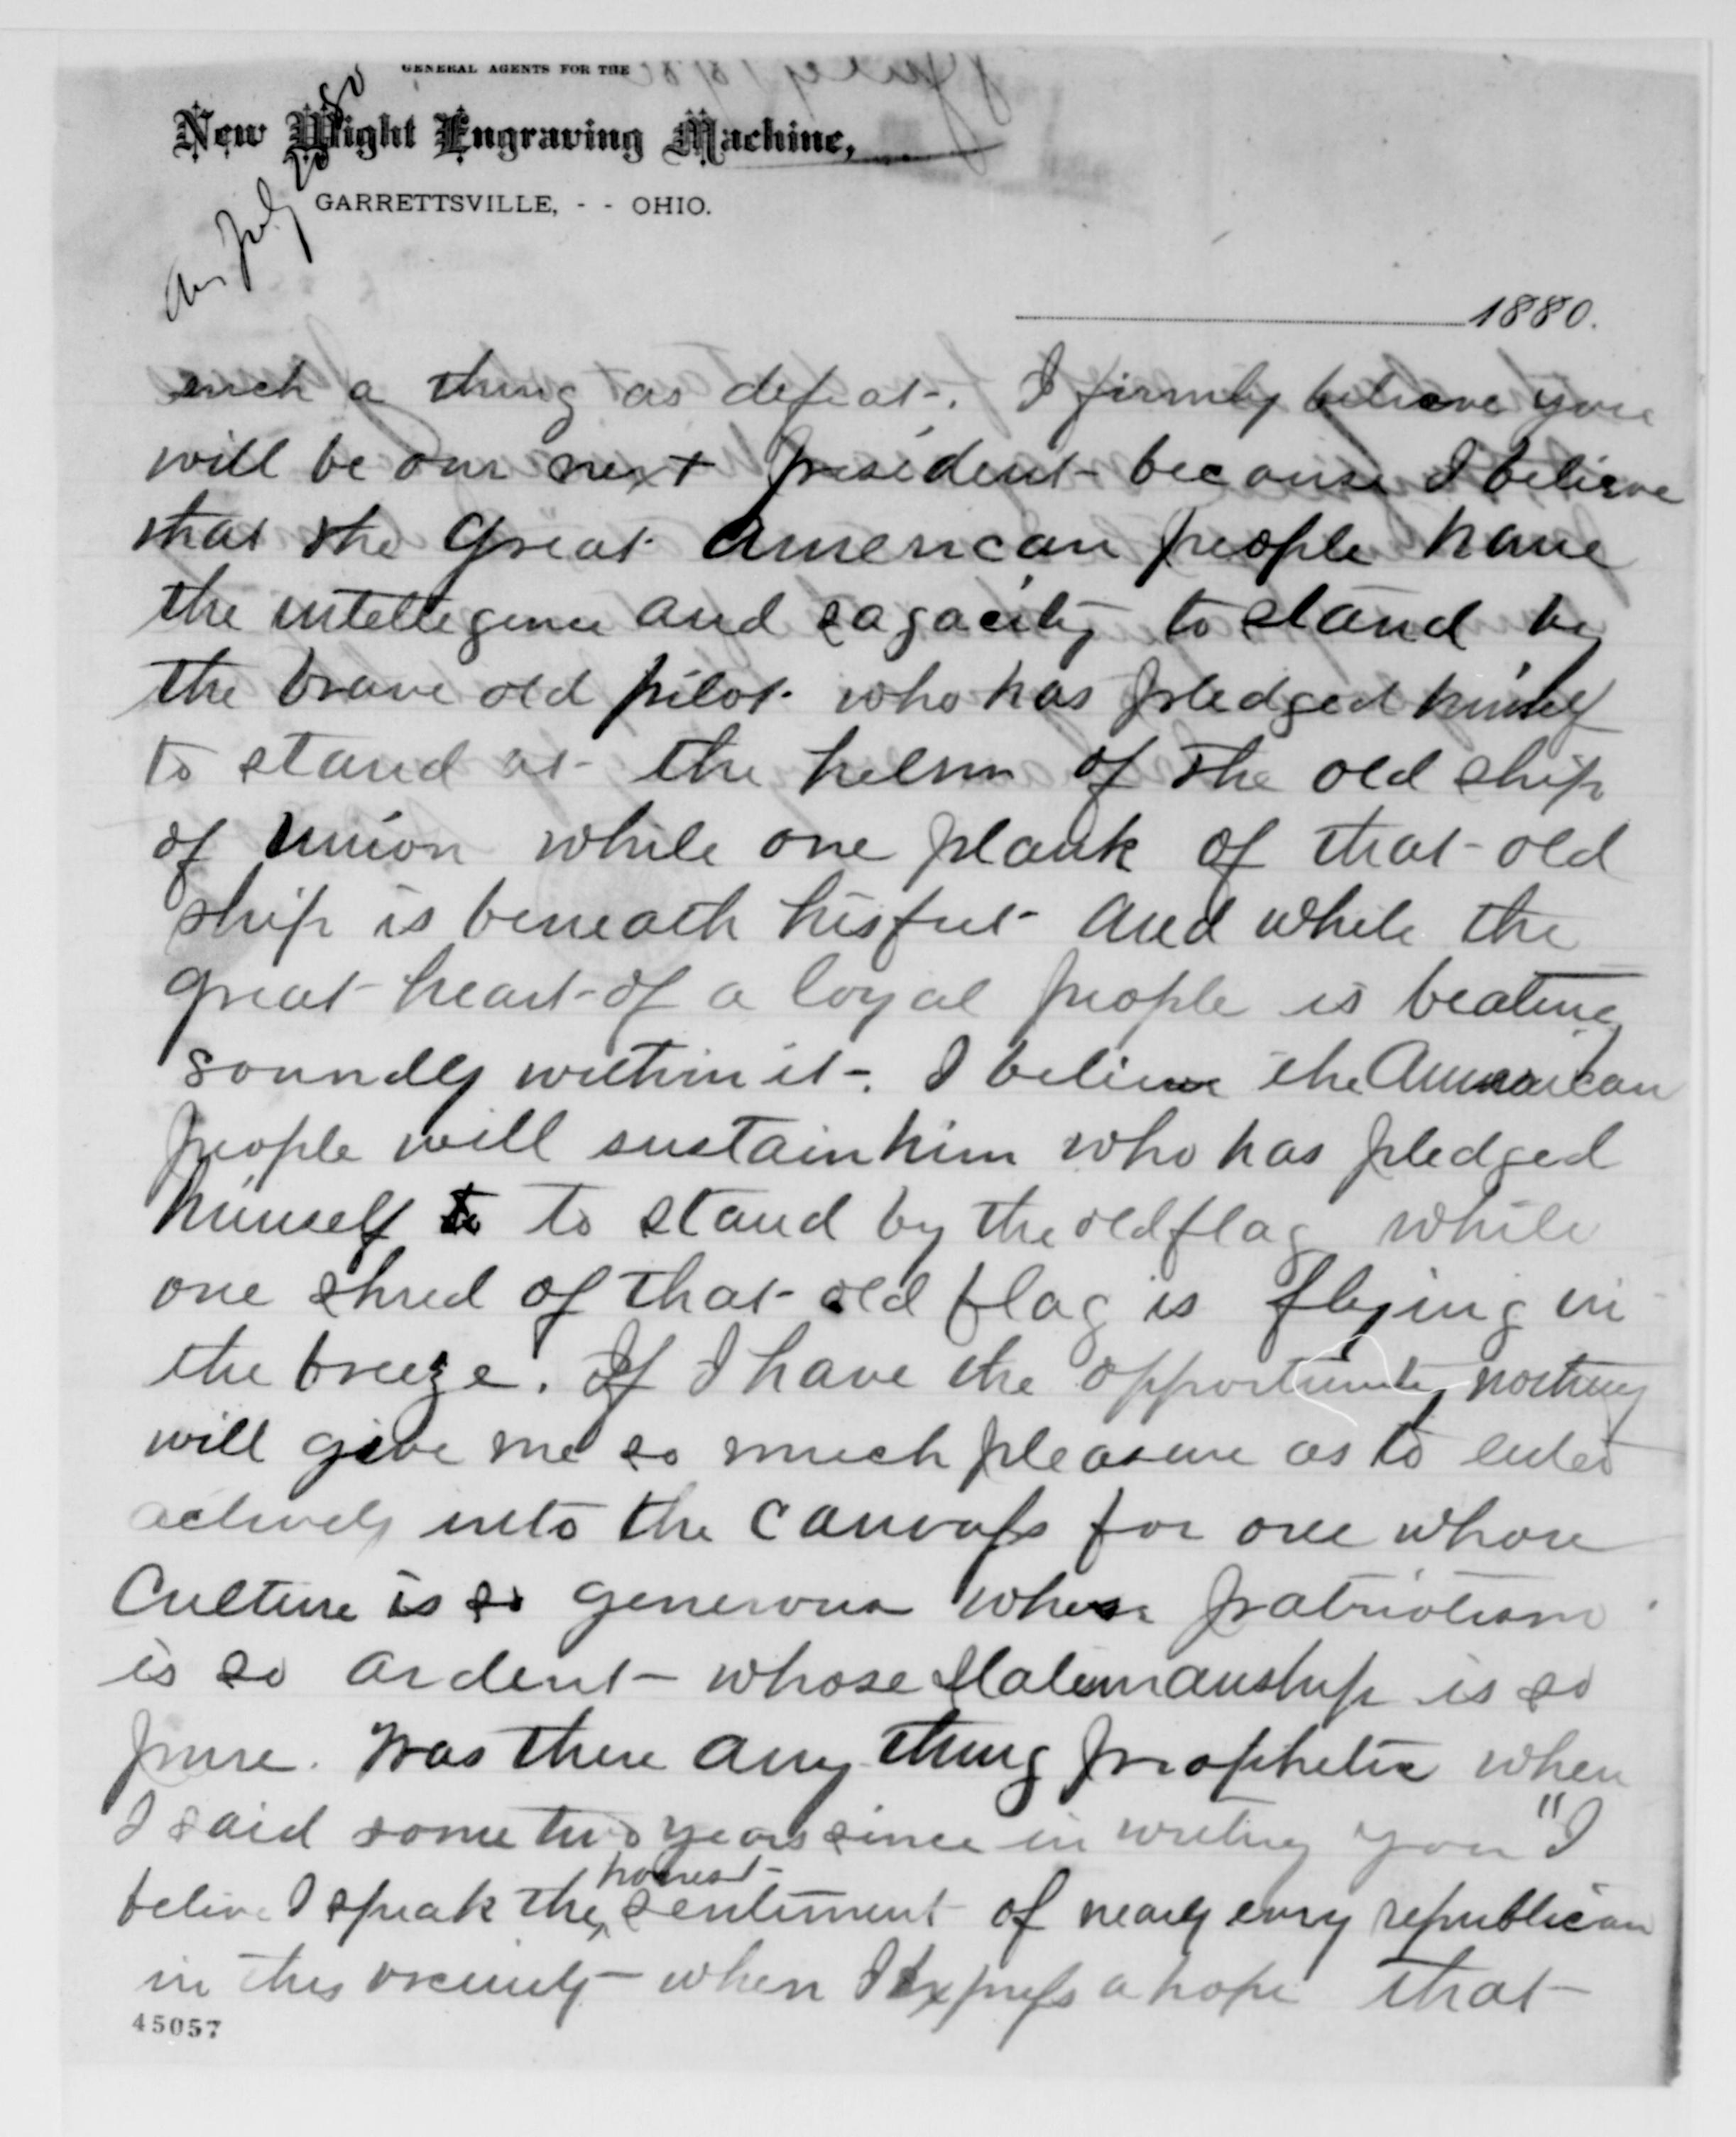 GENERAL AGENTS FOR THE
New Wight Engraving Machine,
GARRETTSVILLE, - - OHIO.
An July 20 80
1880.
such a thing as defeat. I firmly believe you
will be our next president because I believe
that the Great American people have
the intellegence and sagacity to stand by
the brave old pilot who has pledged himself
to stand at the helm of the old ship
of Union while one plank of that old
ship is beneath his feet and while the
great heart of a loyal people is beating
soundly within it. I believe the American
people will sustain him who has pledged
himself to to stand by the old flag while
one shred of that old flag is flying in
the breeze. If I have the opportunity nothing
will give me so much pleasure as to enter
actively into the canvass for one whose
Culture is so generous whose patriotism
is so ardent whose Statesmanship is so
pure. Was there any thing prophetic when
I said some two years since in writing you "I
believe I speak the honest sentiment of nearly every republican
in this vicinity when I express a hope that
45057